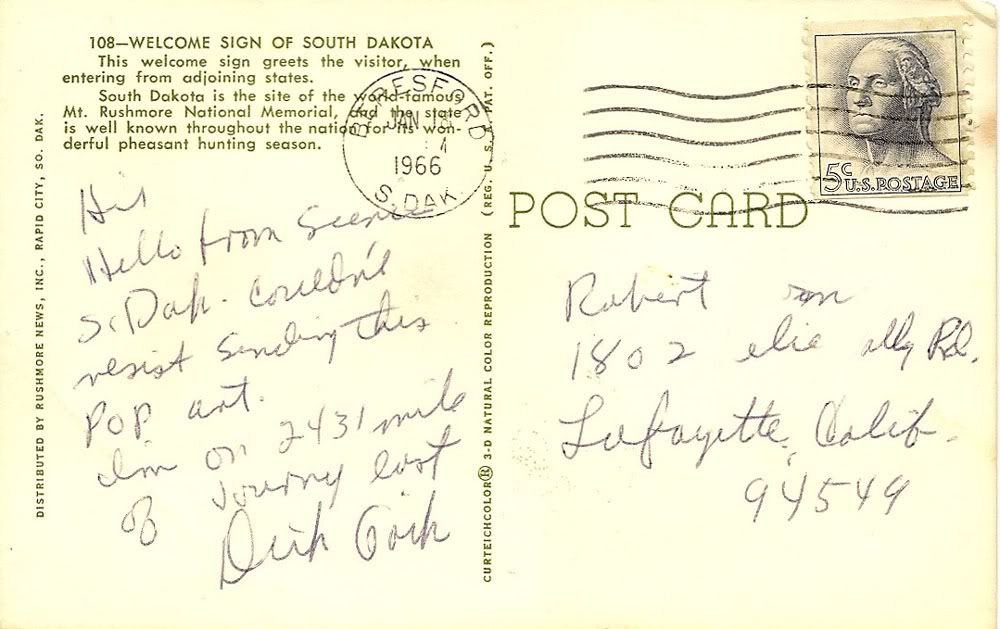 108—WELCOME SIGN OF SOUTH DAKOTA
This welcome sign greets the visitor, when
entering from adjoining states.
South Dakota is the site of the world-famous
Mt. Rushmore National Memorial, and the state
is well known throughout the nation for its won-
derful pheasant hunting season.
DISTRIBUTED BY RUSHMORE NEWS, INC., RAPID CITY, SO. DAK.
Hello from Scenic
S. Dak. Couldn't
resist sending this
POP art.
I'm on 2431 mile
journy east
of
Dick
BERESFORD
JAN
1966
S. DAK
CURTEICHCOLOR® 3-D NATURAL COLOR REPRODUCTION (REG. U. S. PAT. OFF.)
5c U.S. POSTAGE
POST CARD
Robert
1802 Rd.
Lafayette, Calif.
94549